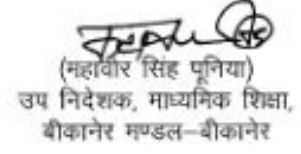 (महावीर सिंह पूनिया)
उप निदेशक, माध्यमिक शिक्षा,
बीकानेर मण्डल–बीकानेर